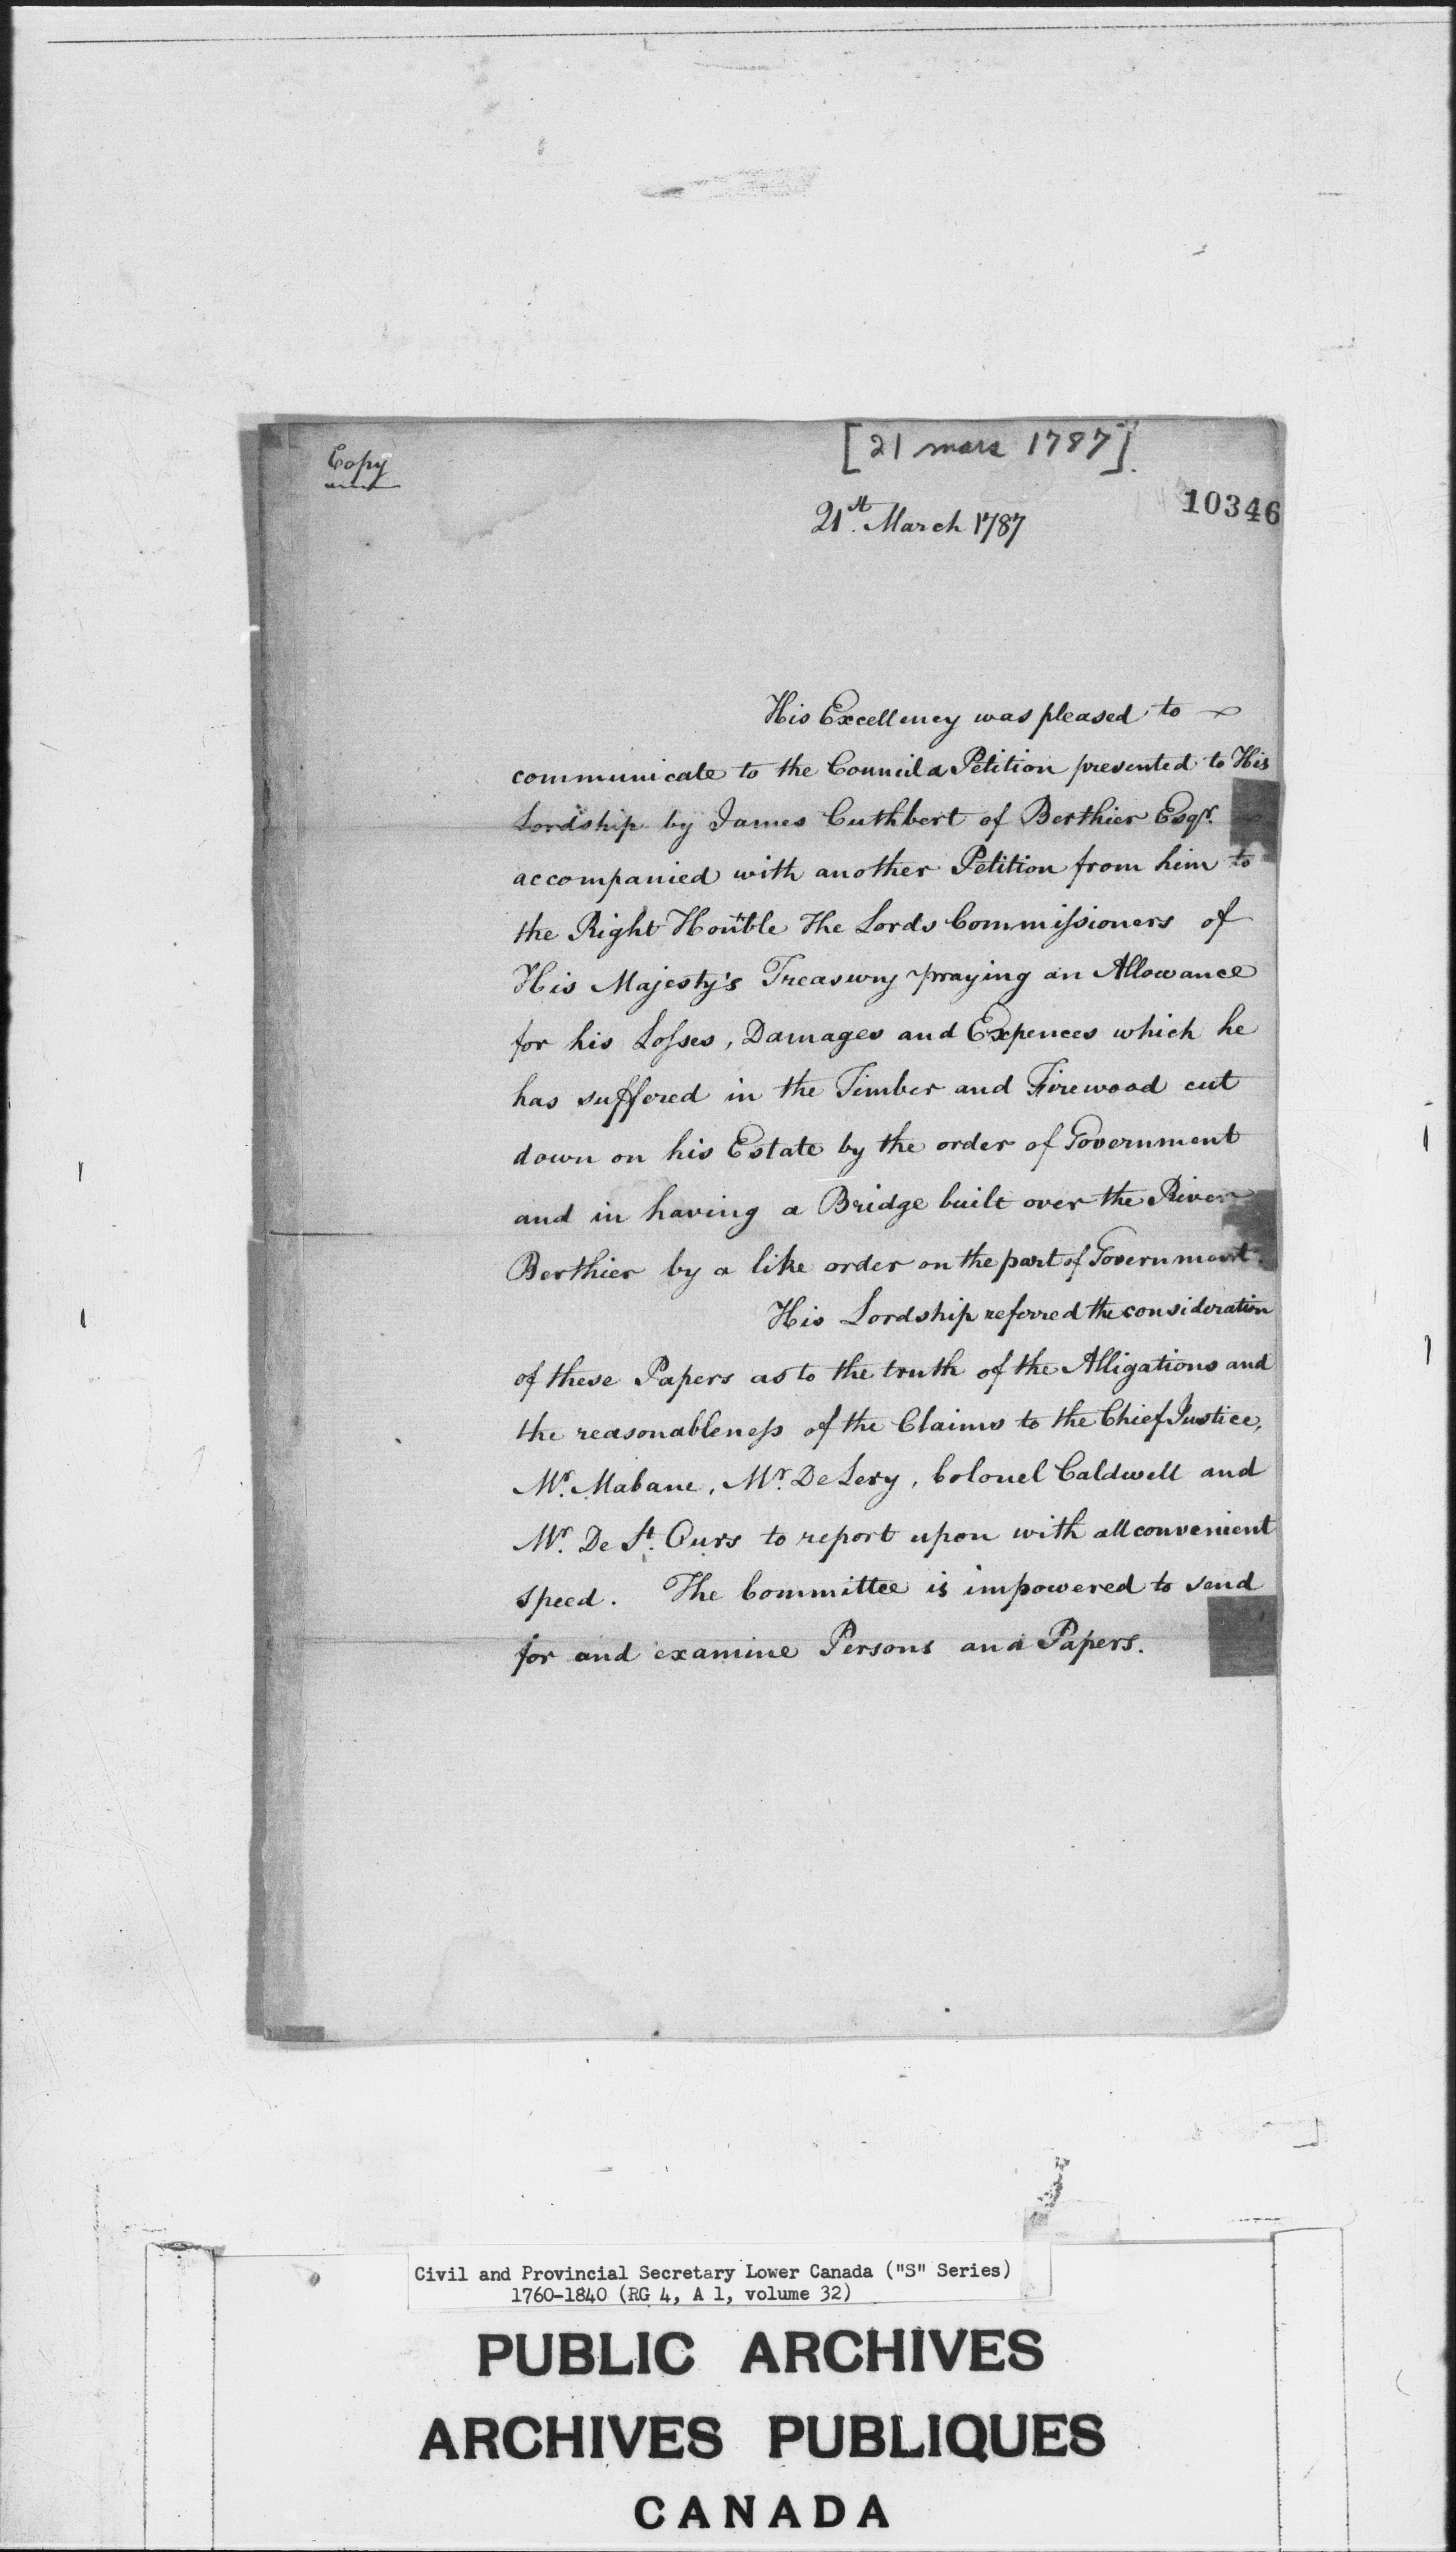 Copy
[21 mars 1787]
10346
21st. March 1787
His Excellency was pleased to
communicate to the Council a Petition presented to His
Lordship by James Cuthbert of Berthier Esqr.
accompanied with another Petition from him to
the Right Honble The Lords Commissioners of
His Majesty's Treasury praying an Allowance
for his Losses, Damages and Expences which he
has suffered in the Timber and Firewood cut
down on his Estate by the order of Government
and in having a Bridge built over the River
Berthier by a like order on the part of Government.
His Lordship referred the consideration
of these Papers as to the truth of the Alligations and
the reasonableness of the Claims to the Chief Justice,
Mr. Mabane, Mr. De Lery, Colonel Caldwell and
Mr. De St. Ours to report upon with all convenient
speed. The Committee is impowered to send
for and examine Persons and Papers.
Civil and Provincial Secretary Lower Canada ("S" Series)
1760-1840 (RG 4, A 1, volume 32)
PUBLIC ARCHIVES
ARCHIVES PUBLIQUES
CANADA